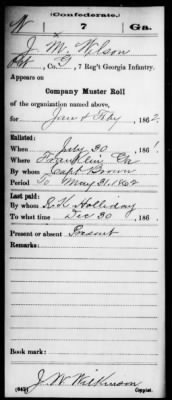 (Confederate.)
7 Ga.
J. M. Wilson
Co. G, 7 Reg't Georgia Infantry.
Appears on
Company Muster Roll
of the organization named above,
for Jan & Feby, 1862.
Enlisted:
When July 30, 1861
Where Franklin Ga
By whom Capt Brown
Period To May 31, 1862
Last paid:
By whom R. K. Holliday
To what time Dec 30, 186
Present or absent Present
Remarks:
Book mark:
(642) J. W. Wilkinson
Copyist.